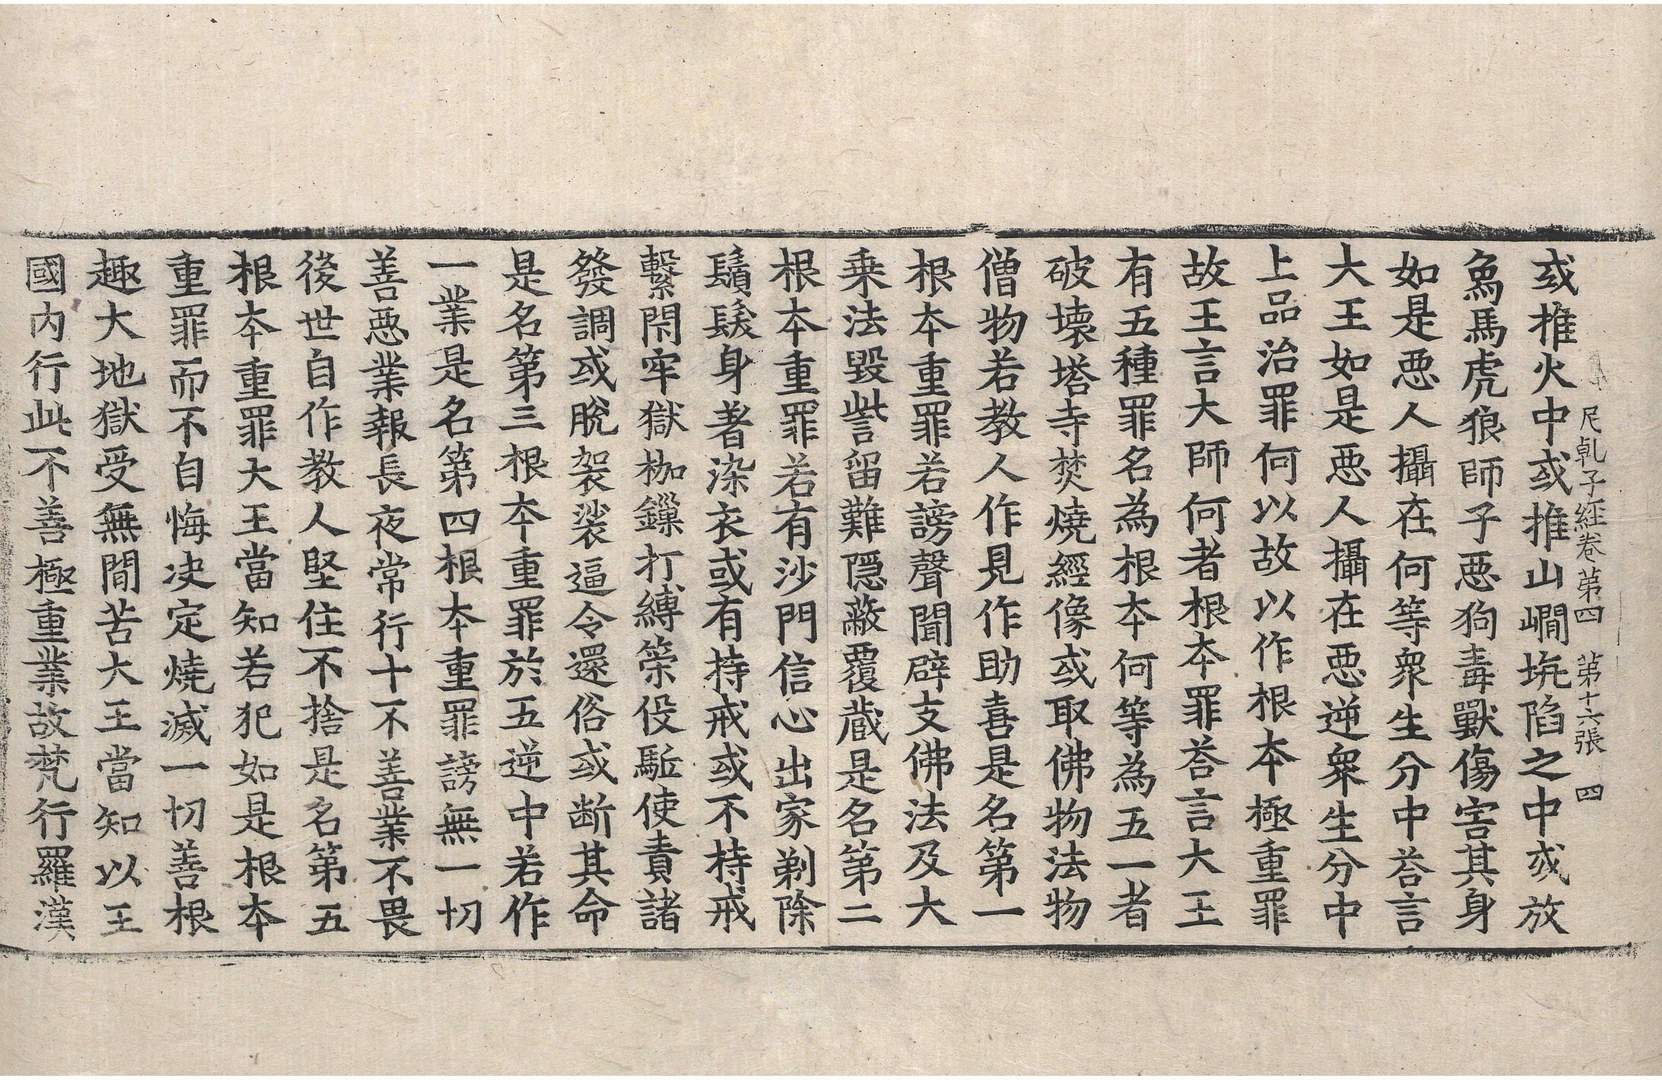 尼乹子經卷第四　第十六張　四
或推火中或推山㵎坑陷之中或放
象馬虎狼師子惡狗毒獸傷害其身
如是惡人攝在何等衆生分中荅言
大王如是惡人攝在惡逆衆生分中
上品治罪何以故以作根本極重罪
故王言大師何者根本罪荅言大王
有五種罪名為根本何等為五一者
破壞塔寺焚燒經像或取佛物法物
僧物若教人作見作助喜是名第一
根本重罪若謗聲聞辟支佛法及大
乗法毀呰留難隱蔽覆藏是名第二
根本重罪若有沙門信心出家剃除
鬚髮身著染衣或有持戒或不持戒
繫閉牢獄枷鏁打縛策役駈使責諸
發調或脫袈裟逼令還俗或断其命
是名第三根本重罪於五逆中若作
一業是名第四根本重罪謗無一切
善惡業報長夜常行十不善業不畏
後世自作教人堅住不捨是名第五
根本重罪大王當知若犯如是根本
重罪而不自悔决定燒滅一切善根
趣大地獄受無間苦大王當知以王
國内行此不善極重業故梵行羅漢